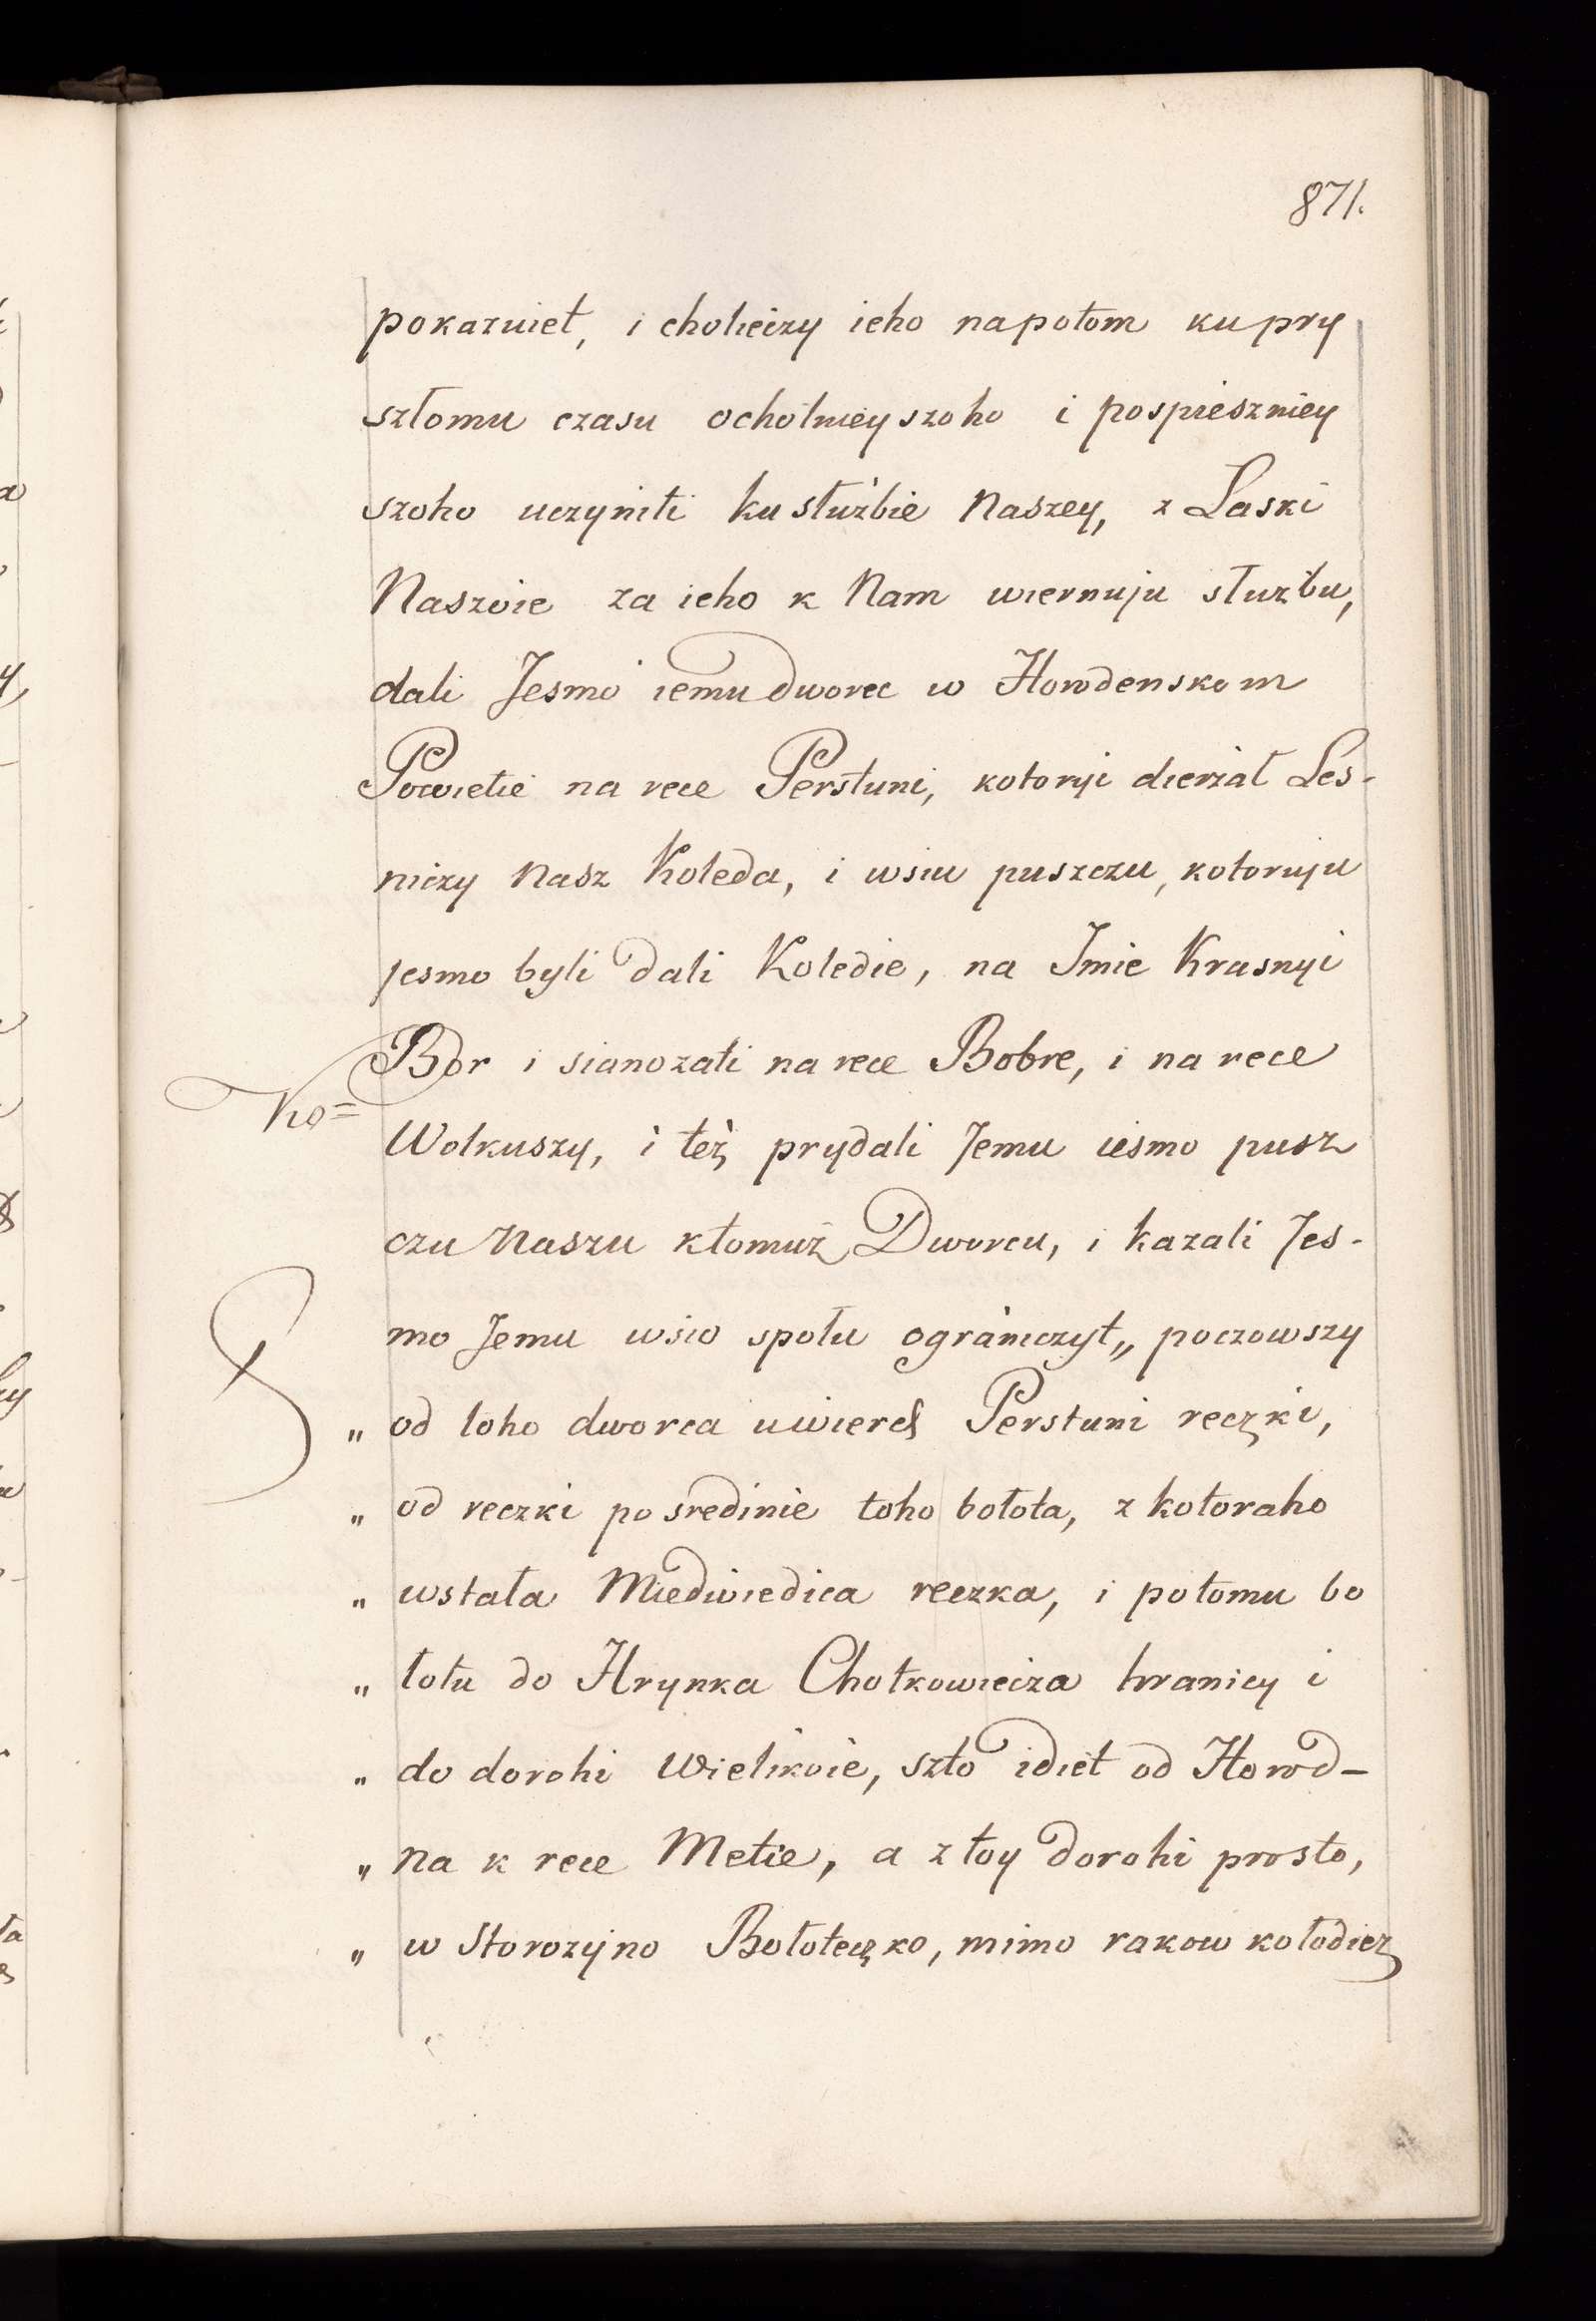 871.
pokazuiet, i chotieczy ieho napotom ku pry
szłomu czasu ochotnieyszoho i pospieszniey
szoho uczyniti ku służbie Naszey, z Laski
Naszoie za ieho k Nam wiernuju służbu,
dali Jesmo iemu dworec w Horodenskom
Powietie na rece Perstuni, kotoryi dierżał Les-
niczy Nasz Koleda, i wsiu puszczu, kotoruju
jesmo byli dali Koledie, na Jmie Krasnyi
Bor i sianozati na rece Bobre, i na rece
Ko=
Wolkuszy, i też prydali Jemu iesmo pusz
czu Naszu ktomuż Dworcu, i kazali Jes-
mo Jemu wsio społu ograniczyt „ poczowszy
„ od toho dworca uwierch Perstuni reczki,
„ od reczki po sredinie toho bołota, z kotoraho
„ wstała Miedwiedica reczka, i potomu bo
„ łotu do Hrynka Chotkowicza hranicy i
„ do dorohi Wielikoie, szto idiet od Horod-
„ na k rece Metie, a z toy dorohi prosto,
„ w Storozyno Bołoteczko, mimo rakow kołodiez